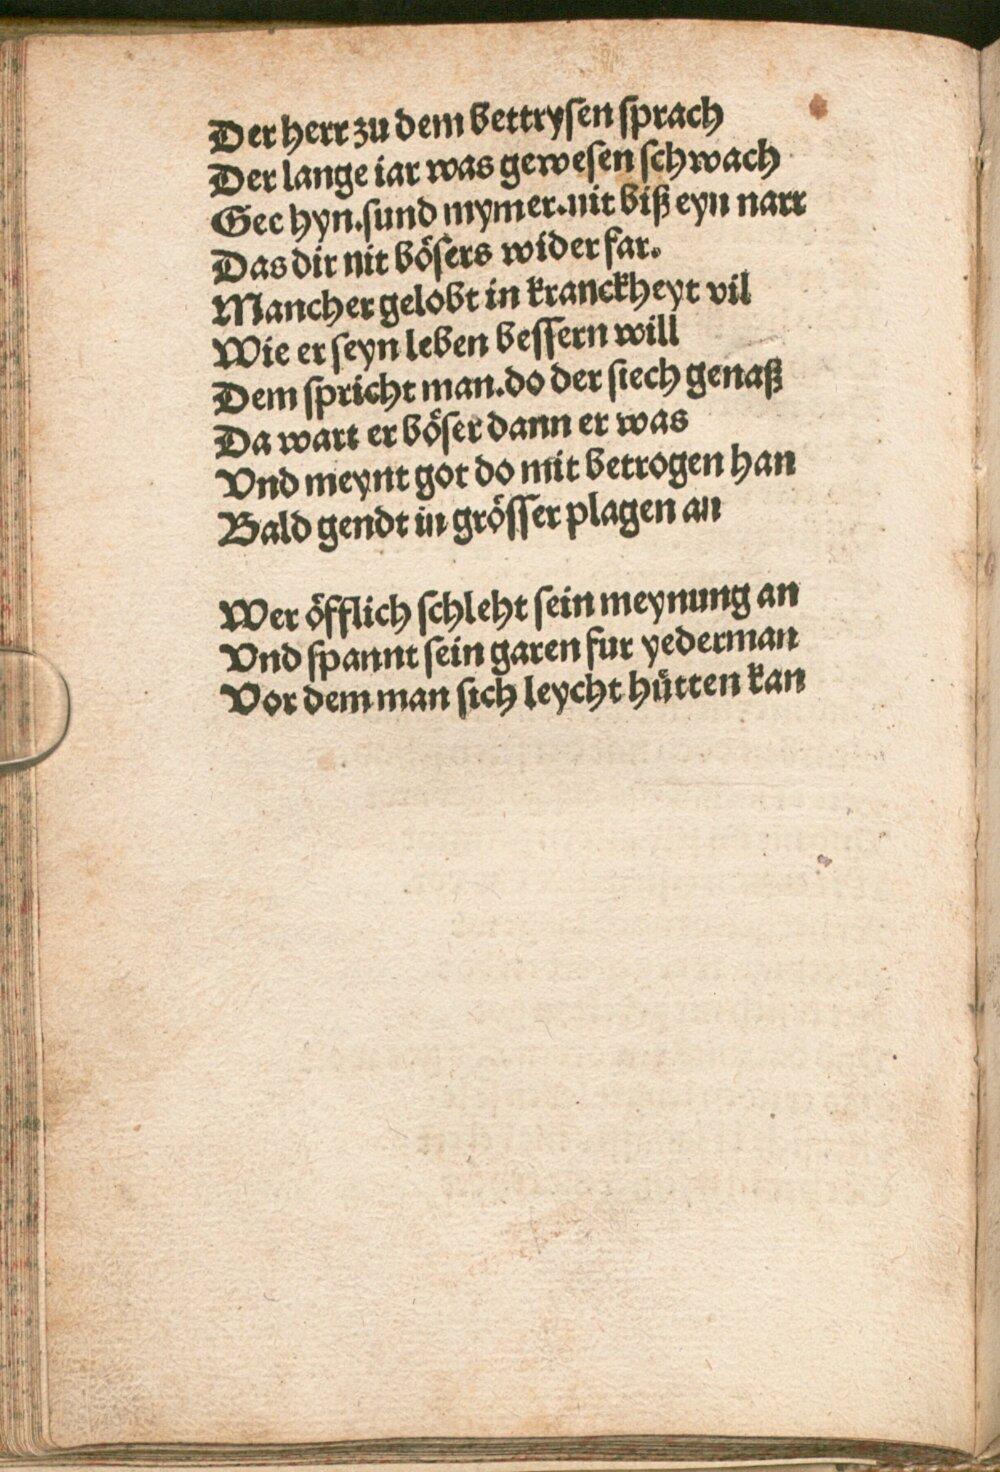 Der herr zu dem bettrysen sprach
Der lange iar was gewesen schwach
Gee hyn.sund mymer.nit biß eyn narr
Das dir nit bösers wider far.
Mancher gelobt in kranckheyt vil
Wie er seyn leben bessern will
Dem spricht man.do der siech genaß
Da wart er böser dann er was
Vnd meynt got do mit betrogen han
Bald gendt in grösser plagen an
Wer öfflich schleht sein meynung an
Vnd spannt sein garen fur yederman
Vor dem man sich leycht hütten kan